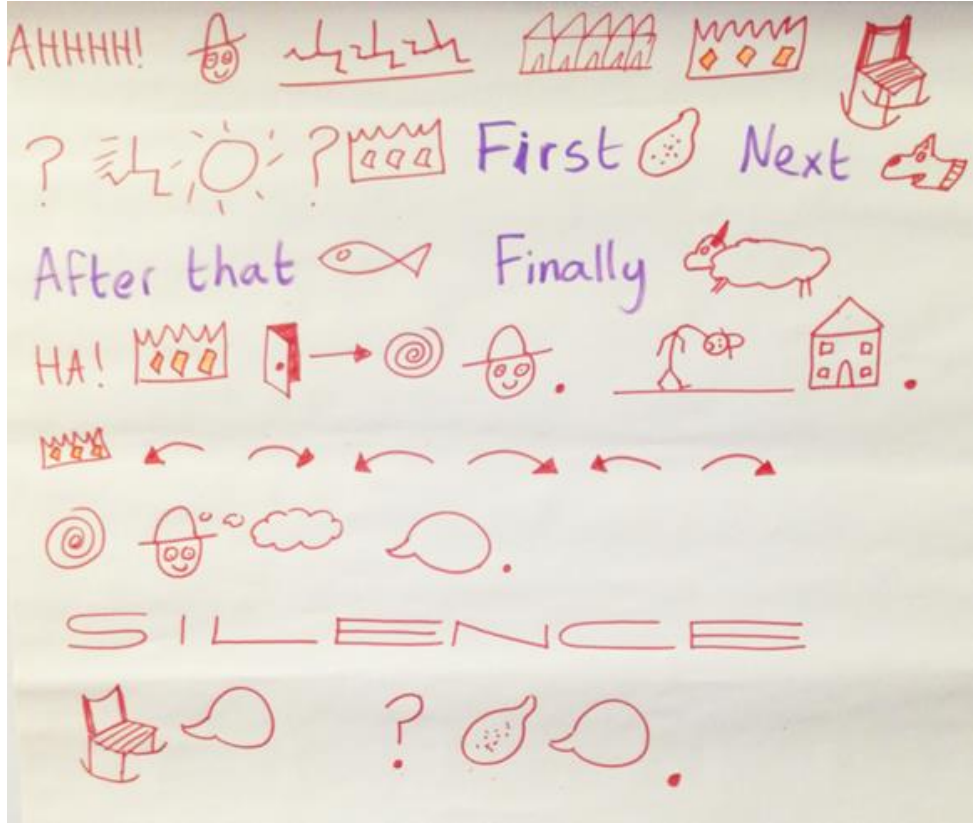 AHHHH!
? ? First Next
After that Finally
HA! . .
.
SILENCE
? .